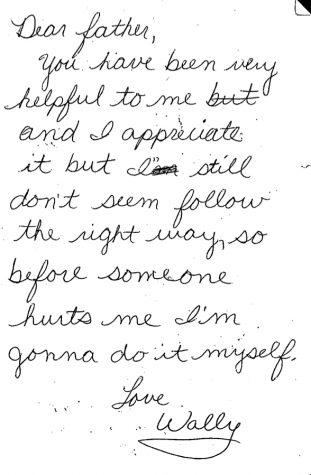 Dear father,
You have been very
helpful to me but
and I appreciate
it but I'm still
don't seem follow
the right way, so
before someone
hurts me I'm
gonna do it myself.
Love
Wally